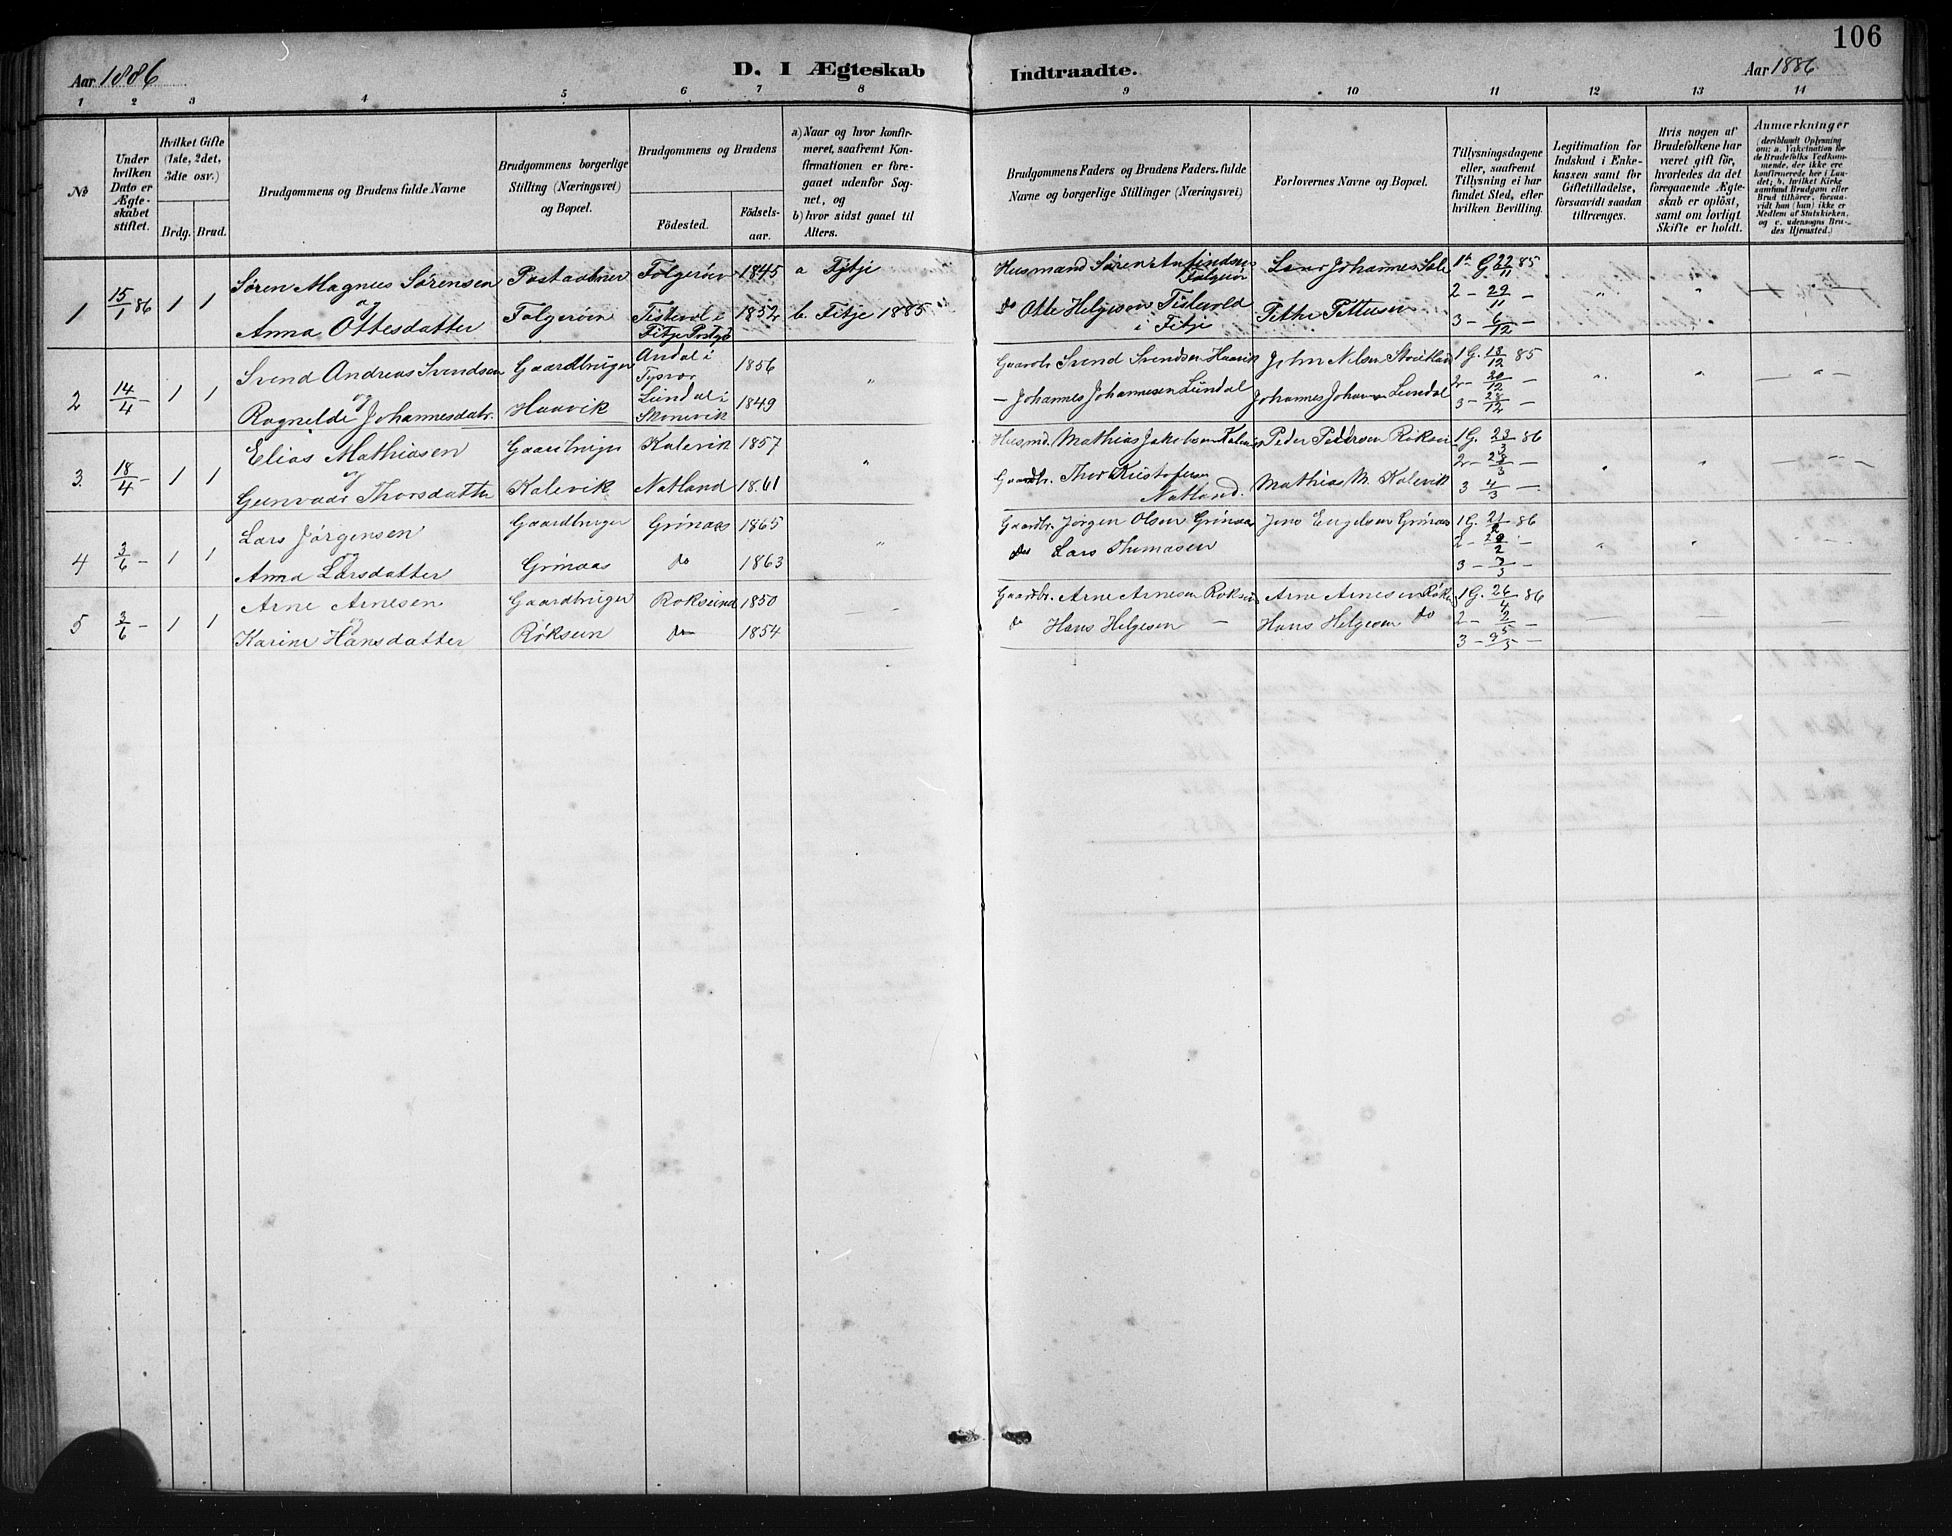 106
Aar 1886
D. I Ægteskab Indtraadte.
Aar 1886
1 2 3 4 5 6 7 8 9 10 11 12 13 14
№
Under hvilken Dato er Ægteskabet stiftet.
Hvilket Gifte (1ste, 2det, 3die osv.)
Brdg. Brud.
Brudgommens og Brudens fulde Navne
Brudgommens borgerlige Stilling (Næringsvei) og Bopæl.
Brudgommens og Brudens
Födested.
Födselsaar.
a) Naar og hvor konfirmeret, saafremt Konfirmationen er foregaaet udenfor Sognet, og
b) hvor sidst gaaet til Alters.
Brudgommens Faders og Brudens Faders fulde Navne og borgerlige Stillinger (Næringsvei)
Forlovernes Navne og Bopæl.
Tillysningsdagene eller, saafremt Tillysning ei har fundet Sted, efter hvilken Bevilling.
Legitimation for Indskud i Enkekassen samt for Giftetilladelse, forsaavidt saadan tiltrænges.
Hvis nogen af Brudefolkene har været gift för, hvorledes da det foregaaende Ægteskab er oplöst, samt om lovligt Skifte er holdt.
Anmærkninger (deriblandt Oplysning om: a. Vakcination for de Brudefolks Vedkommende, der ikke ere konfirmerede her i Landet; b. hvilket Kirkesamfund Brudgom eller Brud tilhører, forsaavidt han (hun) ikke er Medlem af Statskirken, og c. udensogns Brudes Hjemsted.)
1 15/1 86 1 1 Søren Magnus Sørensen Postaabner Folgerøen 1845 a Fitje Husmand Søren Folgerø Johannes 1ste G 22/11 85
og
Anna Ottesdatter Folgerøen Tislevol i Fitje Prstgj 1852 b. Fitje 1885 do Otte Helgesen Tislevold i Fitje Petter Pettersen 2 - 29/11 - " "
3 - 6/12 -
2 14/4 - 1 1 Svend Andreas Svendsen Gaardbruger Andal i Tysvær 1856 " Gaardbr Svend Svendsen Haavik John Nilsen 1 G. 13/12 85
og
Ragnilde Johannesdatr. Haavik Lundal i Skonevik 1849 - Johannes Johannesen Lundal Johannes Johan Lundal 2 - 20/12 - " "
3 - /12 -
3. 18/4 - 1 1 Elias Mathiasen Gaardbruger Kalevik 1857 " Husmd. Mathias Jakobsen Kalevik Peder Pedersen Røksun 1 G. 86
og
Gunvaar Thorsdatter Kalevik Natland 1861 Gaardbr. Thor Kristofersen Natland. Mathias M. Kalevik 2 - /3 - " "
3 4/3 -
4 3/6 - 1 1 Lars Jørgensen Gaardbruger Grönaas 1865 " Gaardbr. Jørgen Olsen Grönaas Jens Engelsen Grönaas 1 G. 21/2 86
og
Anna Larsdatter Grönaas do 1863 do Lars Thomasen 2 - /2 - " "
3 - /3 -
5 3/6 - 1 1 Arne Arnesen Gaardbruger Roksund 1850 Gaardbr. Arne Arnesen Røksun Arne Arnesen Røksun 1 G. 26/4 86
og
Karine Hansdatter Røksun do 1854 do Hans Helgesen - Hans Helgesen do 2 - 2/5 -
3 - 9/5 -